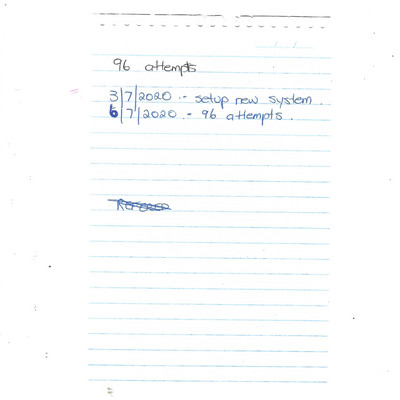 96 attempts
3/7/2020 :- setup new system.
6/7/2020 :- 96 attempts.